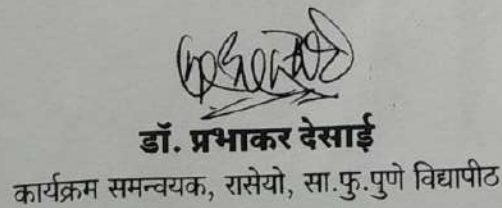 डॉ. प्रभाकर देसाई
कार्यक्रम समन्वयक, रासेयो, सा.फु.पुणे विद्यापीठ